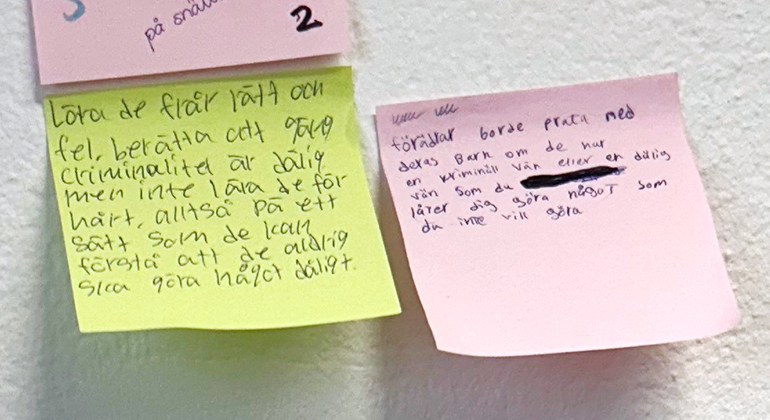 på
2
Lära de från rätt och
fel, berätta att gäng
criminalitet är dålig
men inte lära de för
hårt, alltså på ett
sätt som de kan
förstå att de aldrig
ska göra något dåligt.
föräldrar borde prata med
deras Barn om de har
en kriminäll vän eller en dålig
vän som du
lärer dig göra något som
du inte vill göra